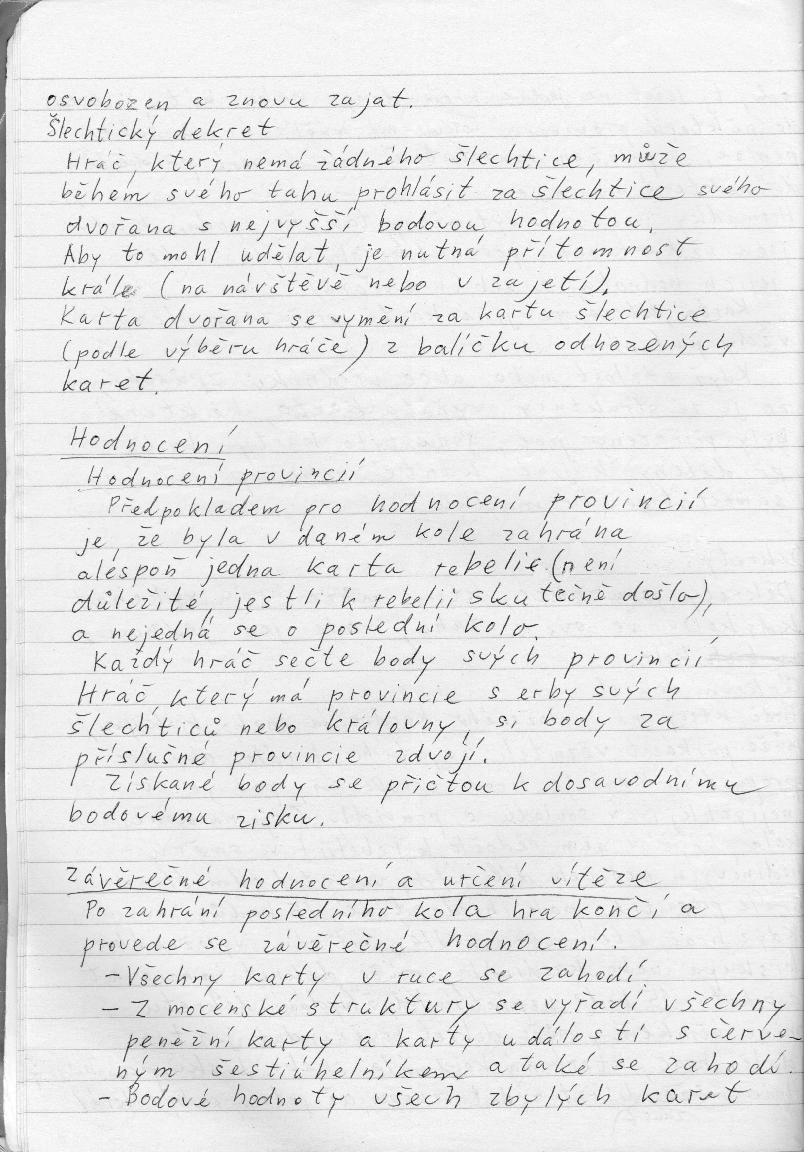 osvobozen a znovu zajat.
Šlechtický dekret
Hráč, který nemá žádného šlechtice, může
během svého tahu prohlásit za šlechtice svého
dvořana s nejvyšší bodovou hodnotou.
Aby to mohl udělat, je nutná přítomnost
krále (na návštěvě nebo v zajetí).
Karta dvořana se vymění za kartu šlechtice
(podle výběru hráče) z balíčku odhozených
karet.
Hodnocení
Hodnocení provincií
Předpokladem pro hodnocení provincií
je, že byla v daném kole zahrána
alespoň jedna karta rebelie (není
důležité, jestli k rebelii skutečně došlo),
a nejedná se o poslední kolo.
Každý hráč sečte body svých provincií.
Hráč, který má provincie s erby svých
šlechticů nebo královny, si body za
příslušné provincie zdvojí.
Získané body se přičtou k dosavodnímu
bodovému zisku.
Závěrečné hodnocení a určení vítěze
Po zahrání posledního kola hra končí a
provede se závěrečné hodnocení.
- Všechny karty v ruce se zahodí.
- Z mocenské struktury se vyřadí všechny
peněžní karty a karty událostí s červe-
ným šestiúhelníkem a také se zahodí.
- Bodové hodnoty všech zbylých karet